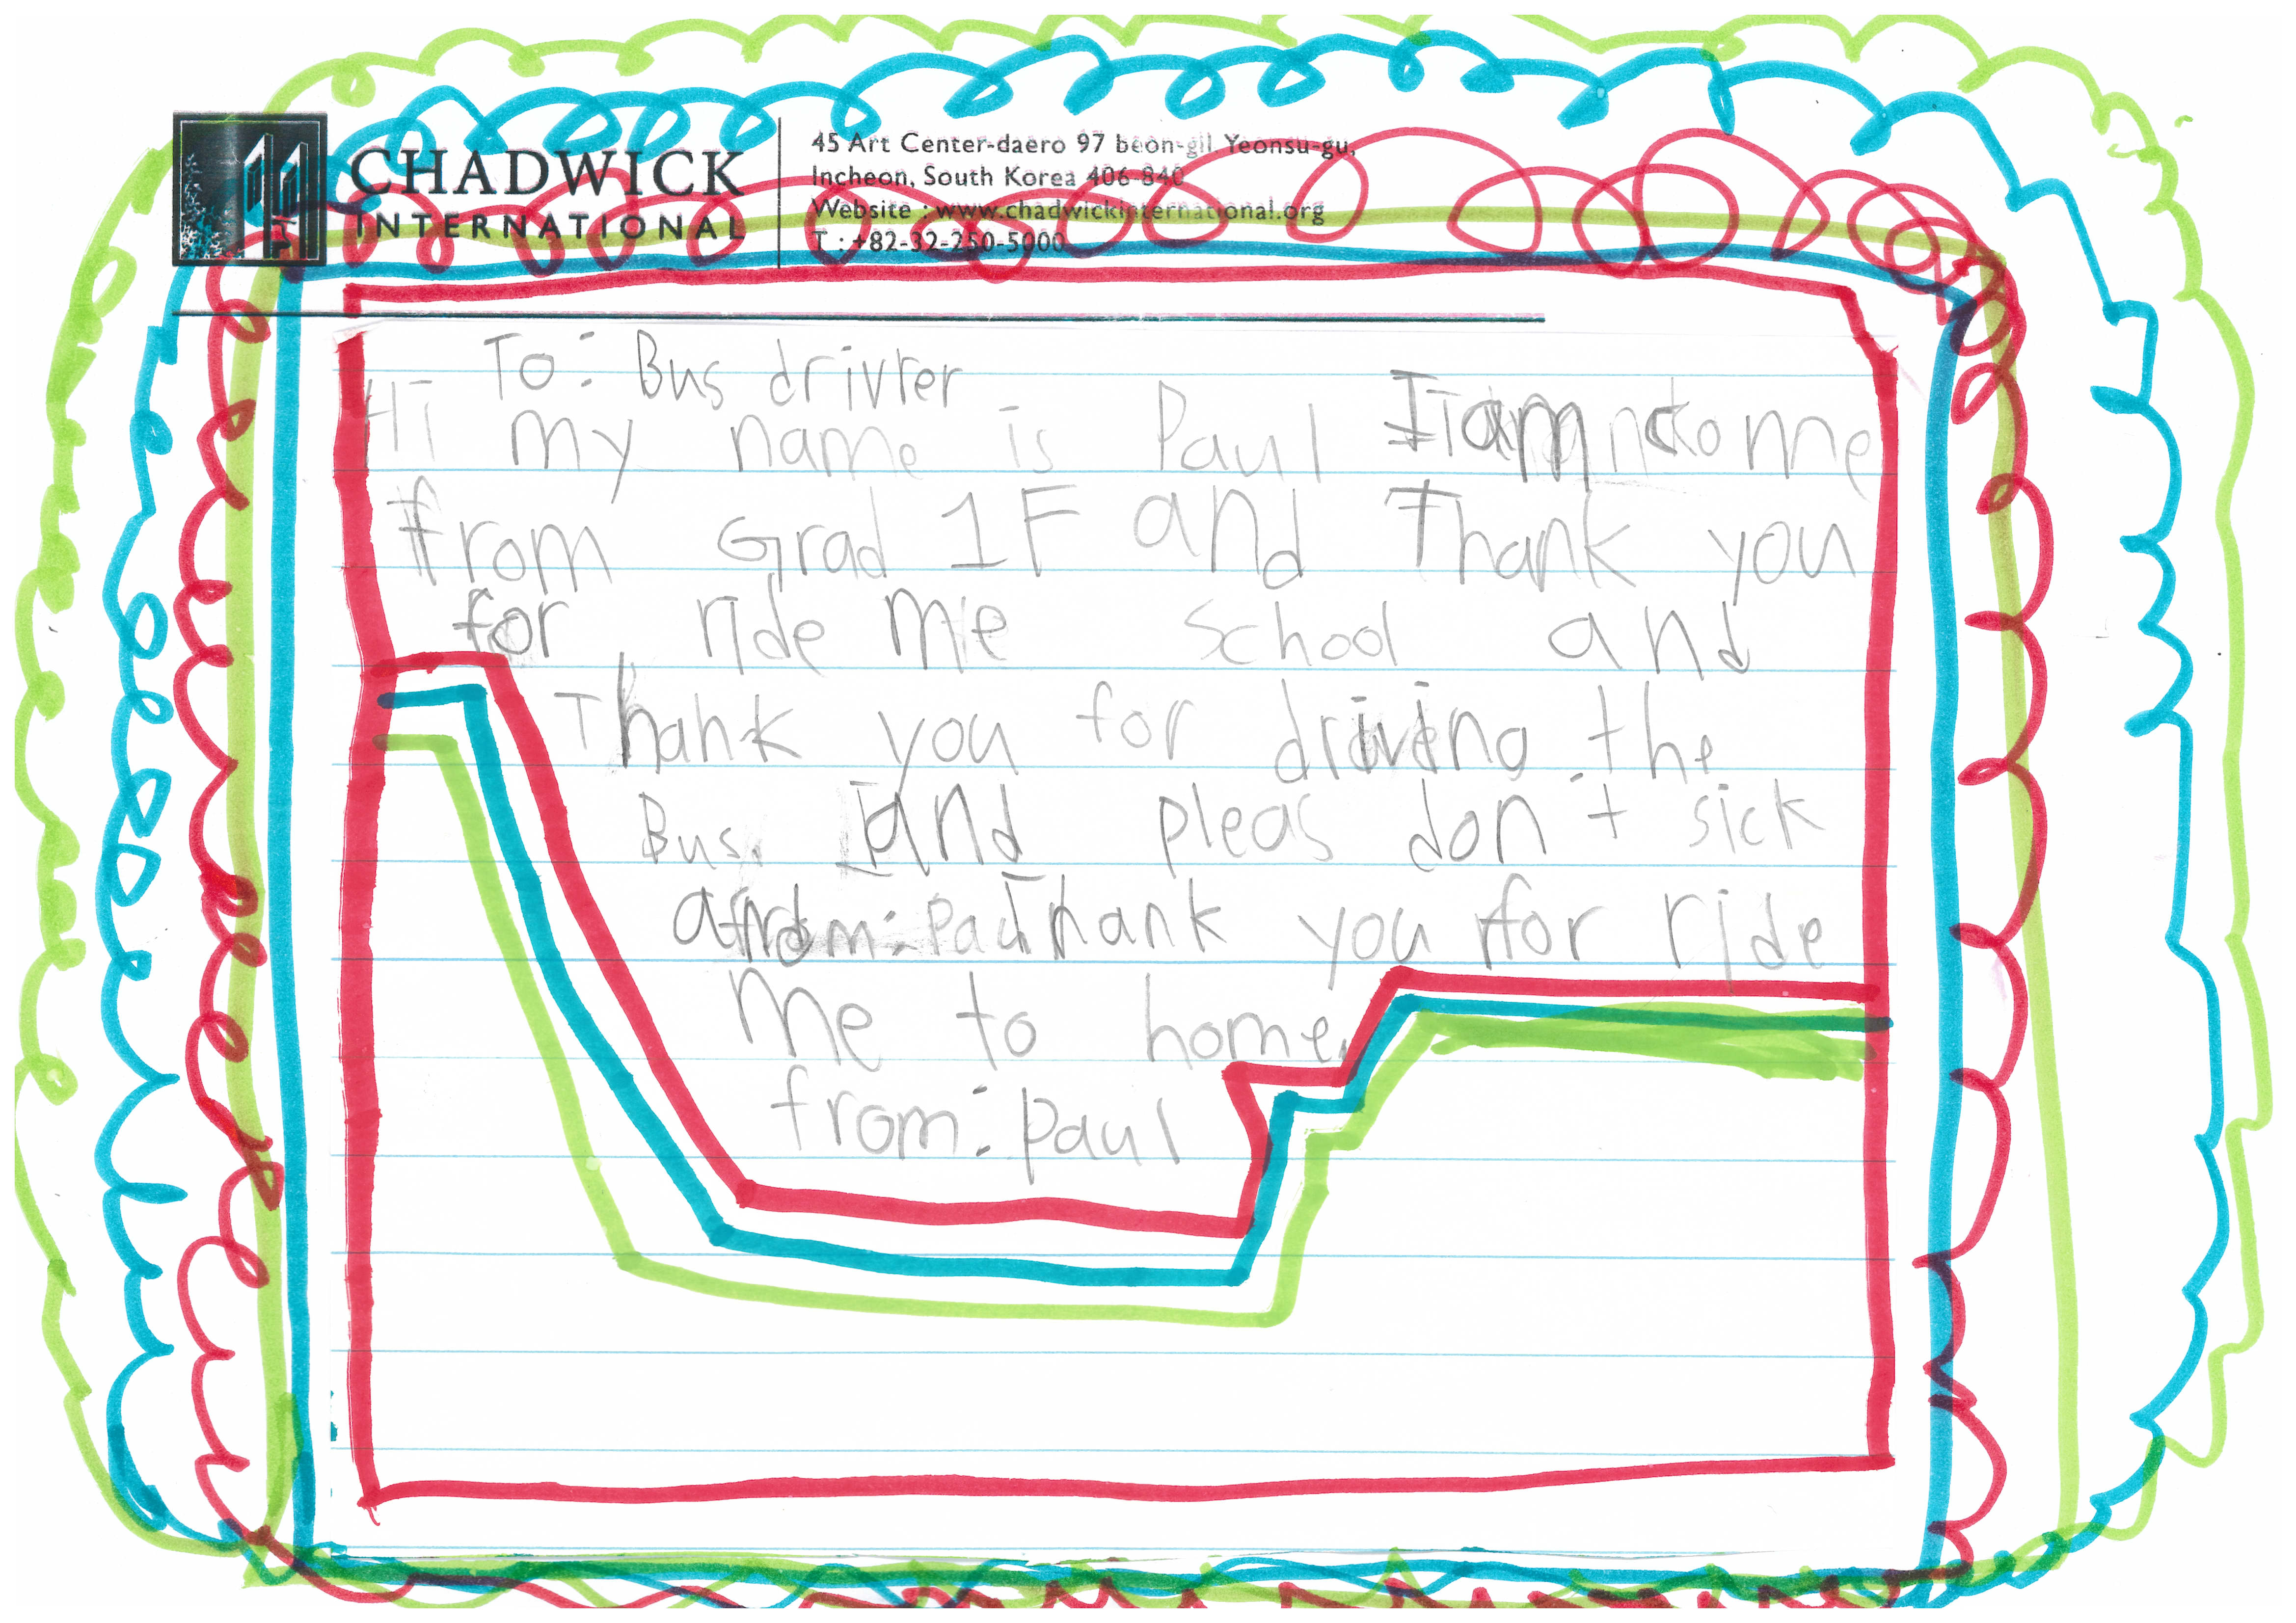 CHADWICK
INTERNATIONAL
45 Art Center-daero 97 beon-gil, Yeonsu-gu,
Incheon, South Korea 406-840
Website : www.chadwickinternational.org
T : +82-32-250-5000
To: Bus drivrer
Hi my name is Paul I am
from Grad 1F and Thank you
for ride me school and
Thank you for driving the
Bus. and pleas don't sick
and Thank you for ride
me to home.
from: paul